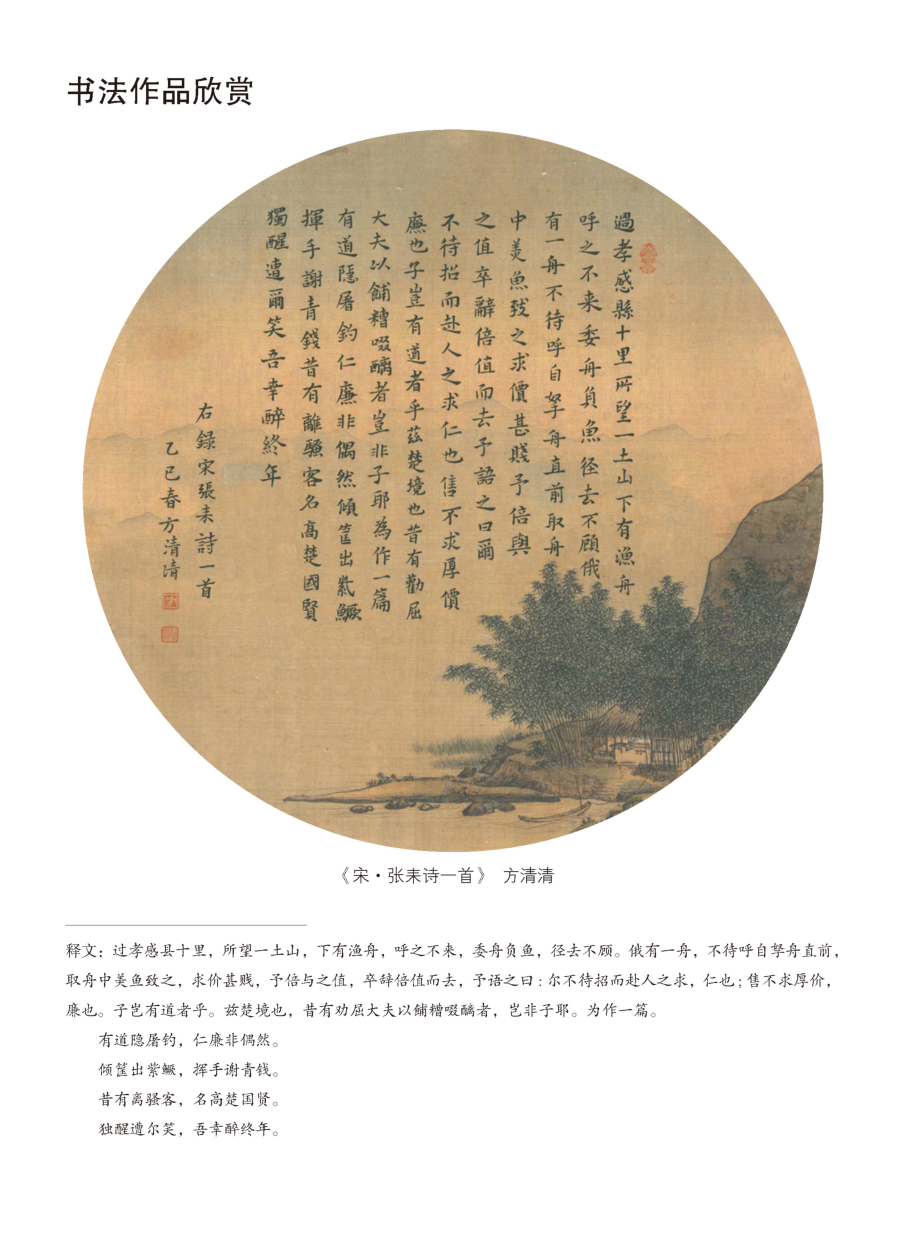 书法作品欣赏
過孝感縣十里所望一土山下有漁舟
呼之不来委舟負魚径去不顾俄
有一舟不待呼自拏舟直前取舟
中美魚致之求價甚賤予倍與
之值卒辭倍值而去予語之曰爾
不待招而赴人之求仁也售不求厚價
廉也子豈有道者乎茲楚境也昔有勸屈
大夫以餔糟啜醨者豈非子耶為作一篇
有道隱屠釣仁廉非偶然傾筐出紫鱖
揮手謝青錢昔有離騷客名高楚國賢
獨醒遭爾笑吾幸醉終年
右錄宋張耒詩一首
乙巳春方清清
《宋·张耒诗一首》 方清清
释文：过孝感县十里，所望一土山，下有渔舟，呼之不来，委舟负鱼，径去不顾。俄有一舟，不待呼自拏舟直前，
取舟中美鱼致之，求价甚贱，予倍与之值，卒辞倍值而去，予语之曰：尔不待招而赴人之求，仁也；售不求厚价，
廉也。子岂有道者乎。兹楚境也，昔有劝屈大夫以餔糟啜醨者，岂非子耶。为作一篇。
有道隐屠钓，仁廉非偶然。
倾筐出紫鳜，挥手谢青钱。
昔有离骚客，名高楚国贤。
独醒遭尔笑，吾幸醉终年。